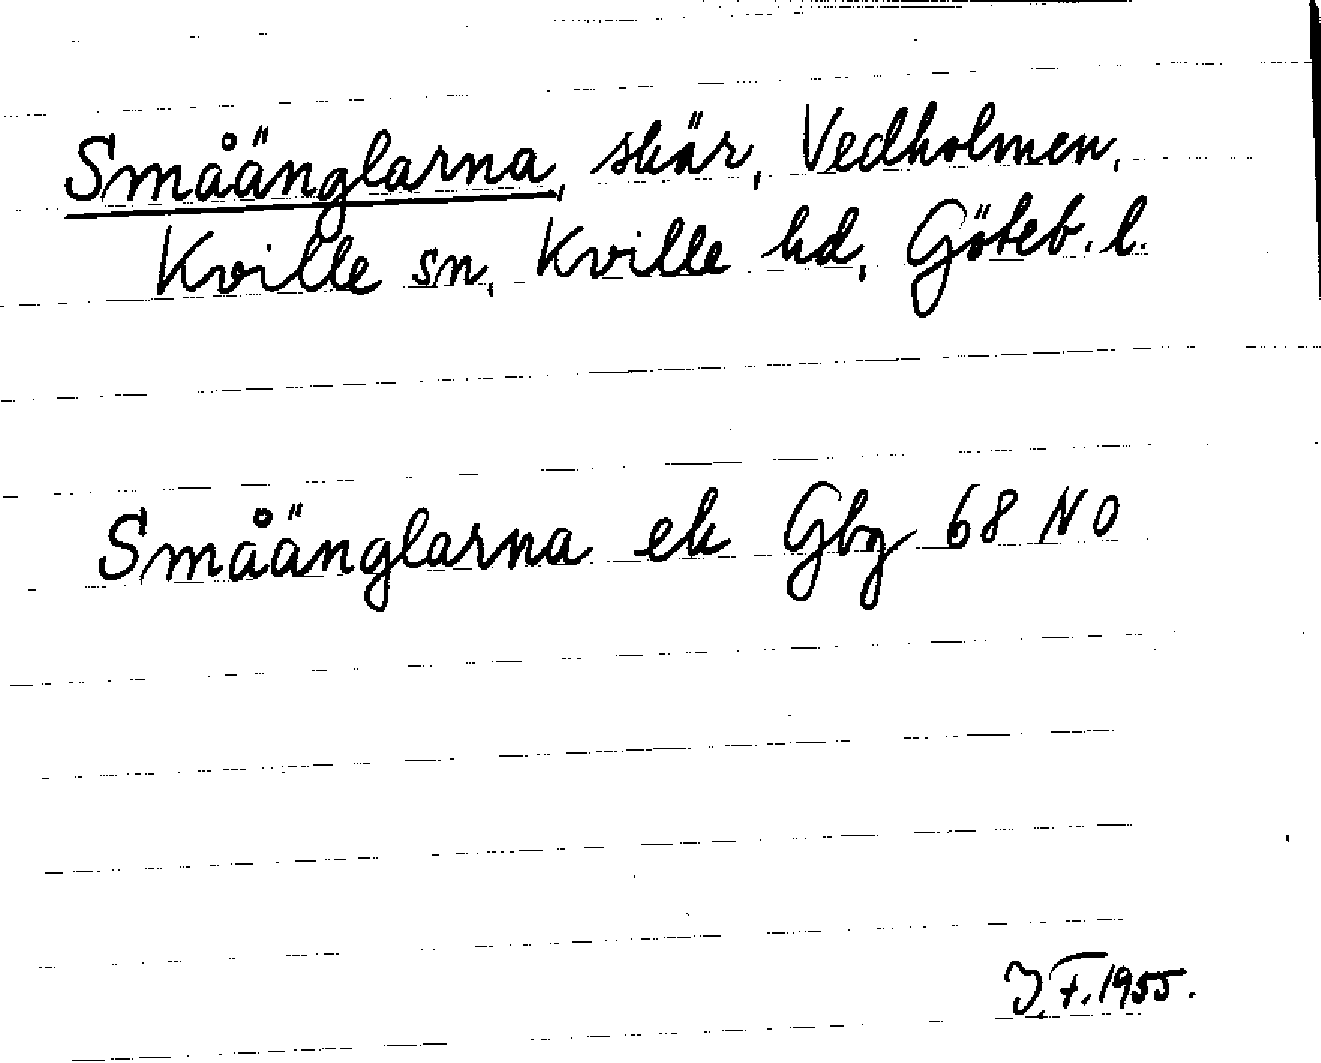 Småänglarna, skär, Vedholmen,
Kville sn, Kville hd, Göteb. l.
Småänglarna ek Gbg 68 NO
J.F. 1955.